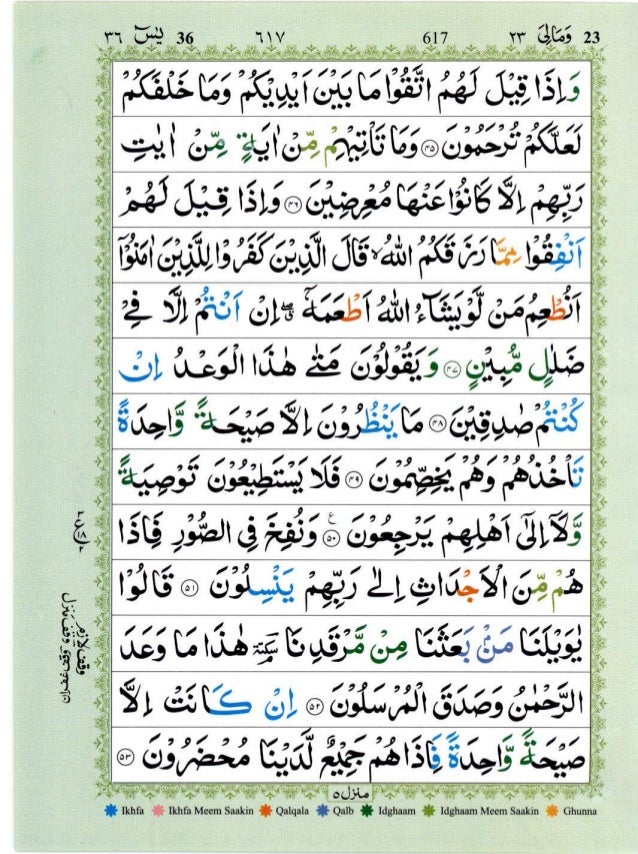 ٣٦ يٰسٓ 36 ٦١٧ 617 وَمَالِىَ ٢٣ 23
وَاِذَا قِيْلَ لَهُمُ اتَّقُوْا مَا بَيْنَ اَيْدِيْكُمْ وَمَا خَلْفَكُمْ
لَعَلَّكُمْ تُرْحَمُوْنَ ﴿۴۵﴾ وَمَا تَاْتِيْهِمْ مِّنْ اٰيَةٍ مِّنْ اٰيٰتِ
رَبِّهِمْ اِلَّا كَانُوْا عَنْهَا مُعْرِضِيْنَ ﴿۴۶﴾ وَاِذَا قِيْلَ لَهُمْ
اَنْفِقُوْا مِمَّا رَزَقَكُمُ اللّٰهُ ۙ قَالَ الَّذِيْنَ كَفَرُوْا لِلَّذِيْنَ اٰمَنُوْۤا
اَنُطْعِمُ مَنْ لَّوْ يَشَآءُ اللّٰهُ اَطْعَمَهٗۤ ۖ اِنْ اَنْتُمْ اِلَّا فِىْ
ضَلٰلٍ مُّبِيْنٍ ﴿۴۷﴾ وَيَقُوْلُوْنَ مَتٰى هٰذَا الْوَعْدُ اِنْ
كُنْتُمْ صٰدِقِيْنَ ﴿۴۸﴾ مَا يَنْظُرُوْنَ اِلَّا صَيْحَةً وَّاحِدَةً
تَاْخُذُهُمْ وَهُمْ يَخِصِّمُوْنَ ﴿۴۹﴾ فَلَا يَسْتَطِيْعُوْنَ تَوْصِيَةً
وَّلَاۤ اِلٰٓى اَهْلِهِمْ يَرْجِعُوْنَ ﴿۵۰﴾ ع وَنُفِخَ فِى الصُّوْرِ فَاِذَا
هُمْ مِّنَ الْاَجْدَاثِ اِلٰى رَبِّهِمْ يَنْسِلُوْنَ ﴿۵۱﴾ قَالُوْا
يٰوَيْلَنَا مَنْۢ بَعَثَنَا مِنْ مَّرْقَدِنَا ۘ هٰذَا مَا وَعَدَ
الرَّحْمٰنُ وَصَدَقَ الْمُرْسَلُوْنَ ﴿۵۲﴾ اِنْ كَانَتْ اِلَّا
صَيْحَةً وَّاحِدَةً فَاِذَا هُمْ جَمِيْعٌ لَّدَيْنَا مُحْضَرُوْنَ ﴿۵۳﴾
منزل ٥
Ikhfa Ikhfa Meem Saakin Qalqala Qalb Idghaam Idghaam Meem Saakin Ghunna